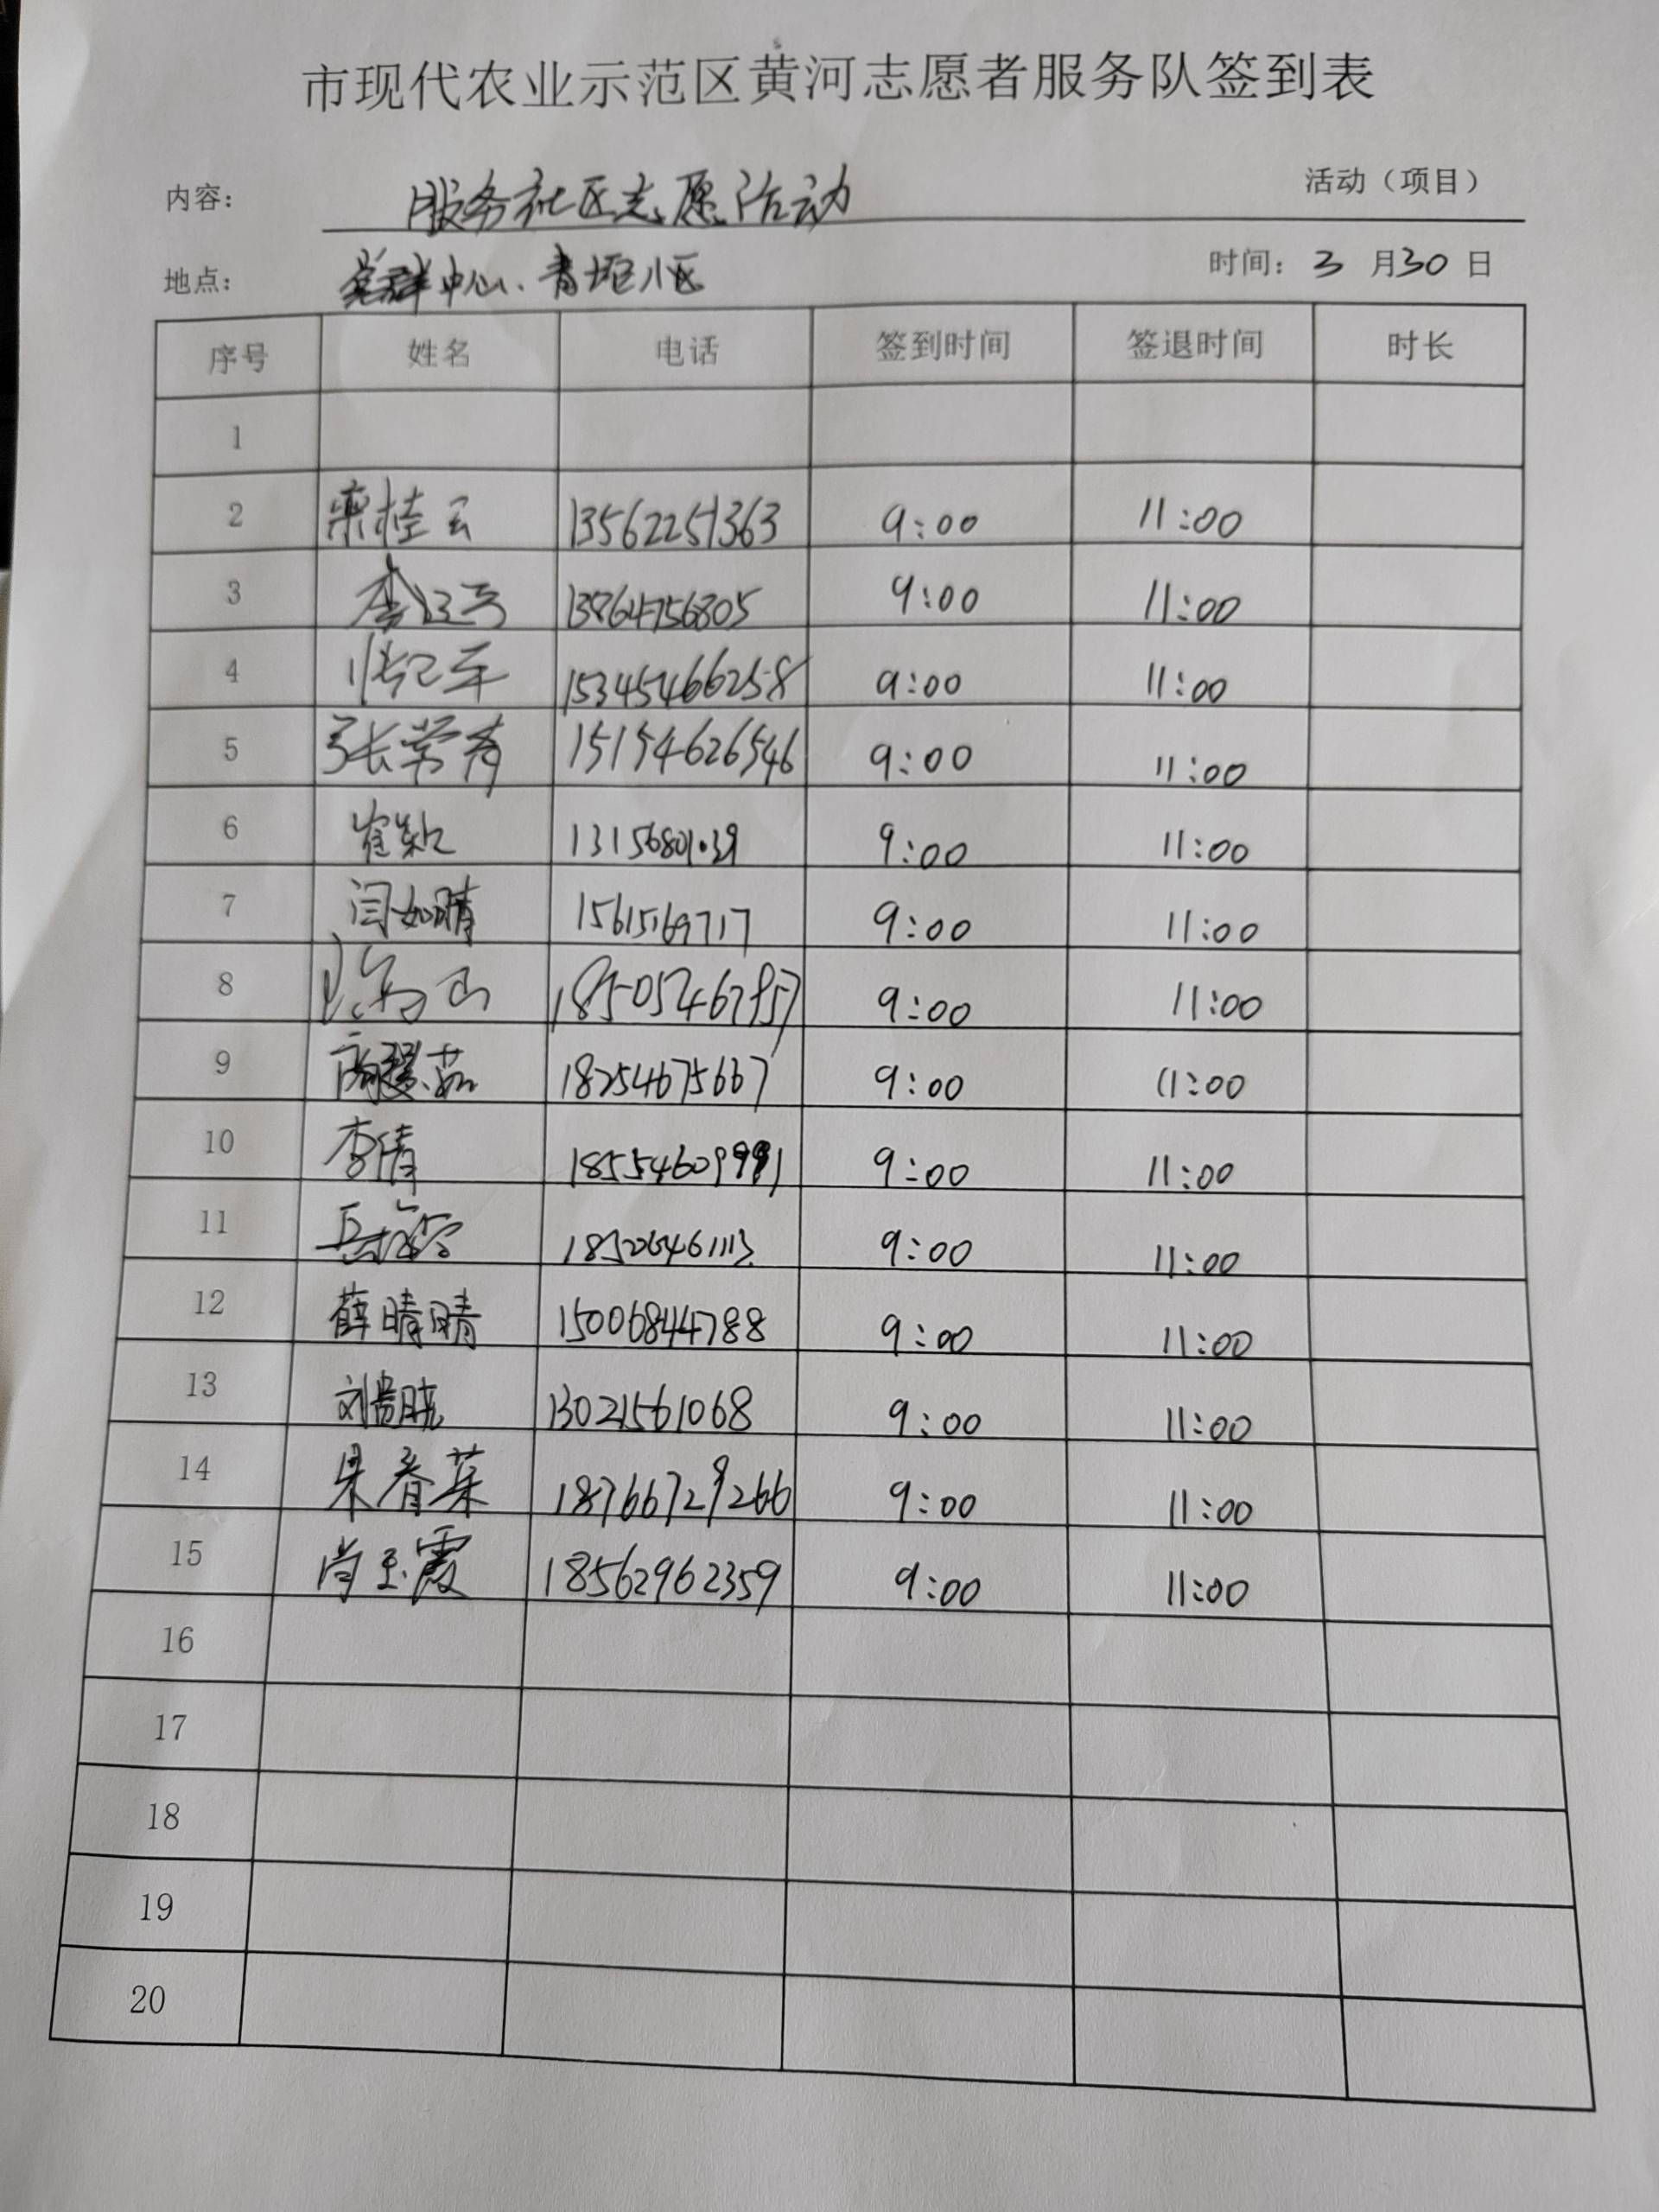 市现代农业示范区黄河志愿者服务队签到表
内容： 服务社区志愿活动 活动（项目）
地点： 党群中心、青垞小区 时间：3月30日
序号 姓名 电话 签到时间 签退时间 时长
1
2 栾桂云 13562251363 9:00 11:00
3 13864756805 9:00 11:00
4 15345466258 9:00 11:00
5 张常青 15154626546 9:00 11:00
6 崔 9:00 11:00
7 闫如晴 15615169717 9:00 11:00
8 18505467957 9:00 11:00
9 18254675667 9:00 11:00
10 李倩 18554609991 9:00 11:00
11 9:00 11:00
12 薛晴晴 15006844788 9:00 11:00
13 刘贵晓 13021561068 9:00 11:00
14 果春菜 18766729266 9:00 11:00
15 尚玉霞 18562962359 9:00 11:00
16
17
18
19
20